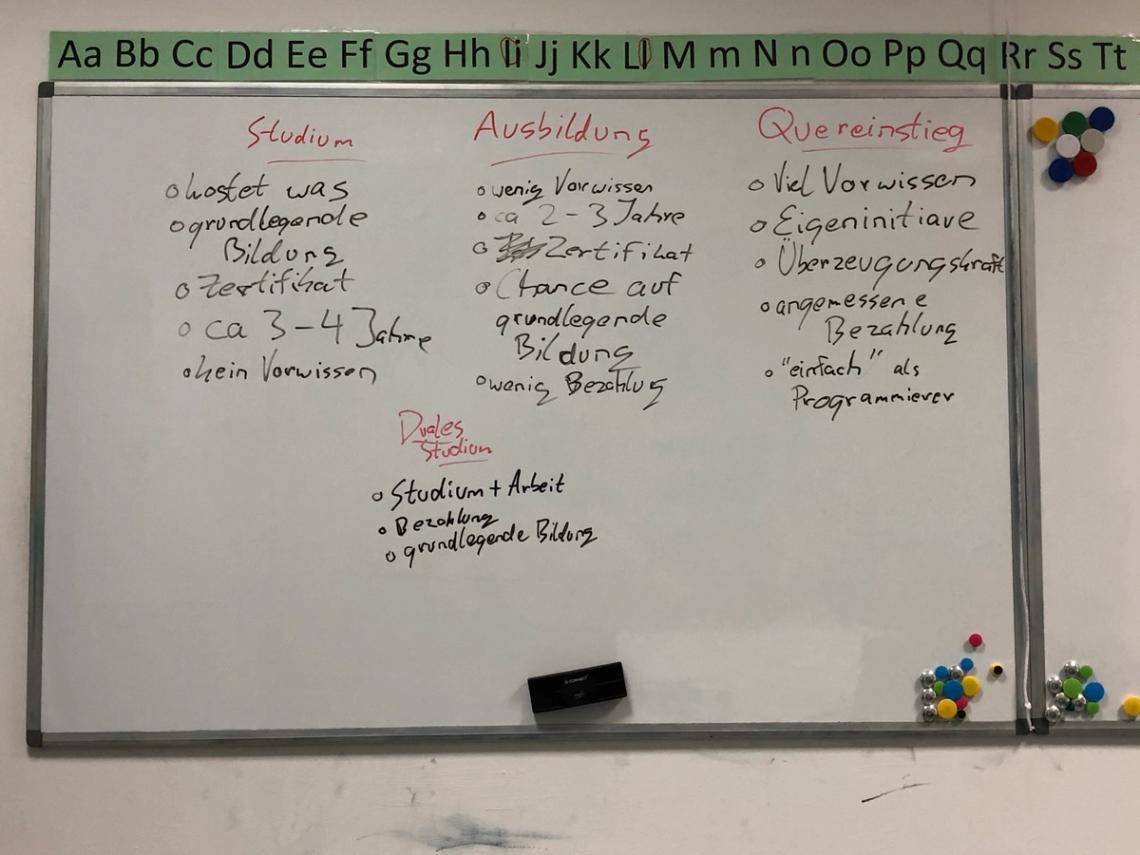 Aa Bb Cc Dd Ee Ff Gg Hh Ii Jj Kk Ll M m N n Oo Pp Qq Rr Ss Tt
Studium
o kostet was
o grundlegende
Bildung
o Zertifikat
o ca 3-4 Jahre
o kein Vorwissen
Ausbildung
o wenig Vorwissen
o ca 2-3 Jahre
o Zertifikat
o Chance auf
grundlegende
Bildung
o wenig Bezahlug
Quereinstieg
o Viel Vorwissen
o Eigeninitiave
o Überzeugungskraft
o angemessene
Bezahlung
o "einfach" als
Programmierer
Duales
Studium
o Studium + Arbeit
o Bezahlung
o grundlegende Bildung